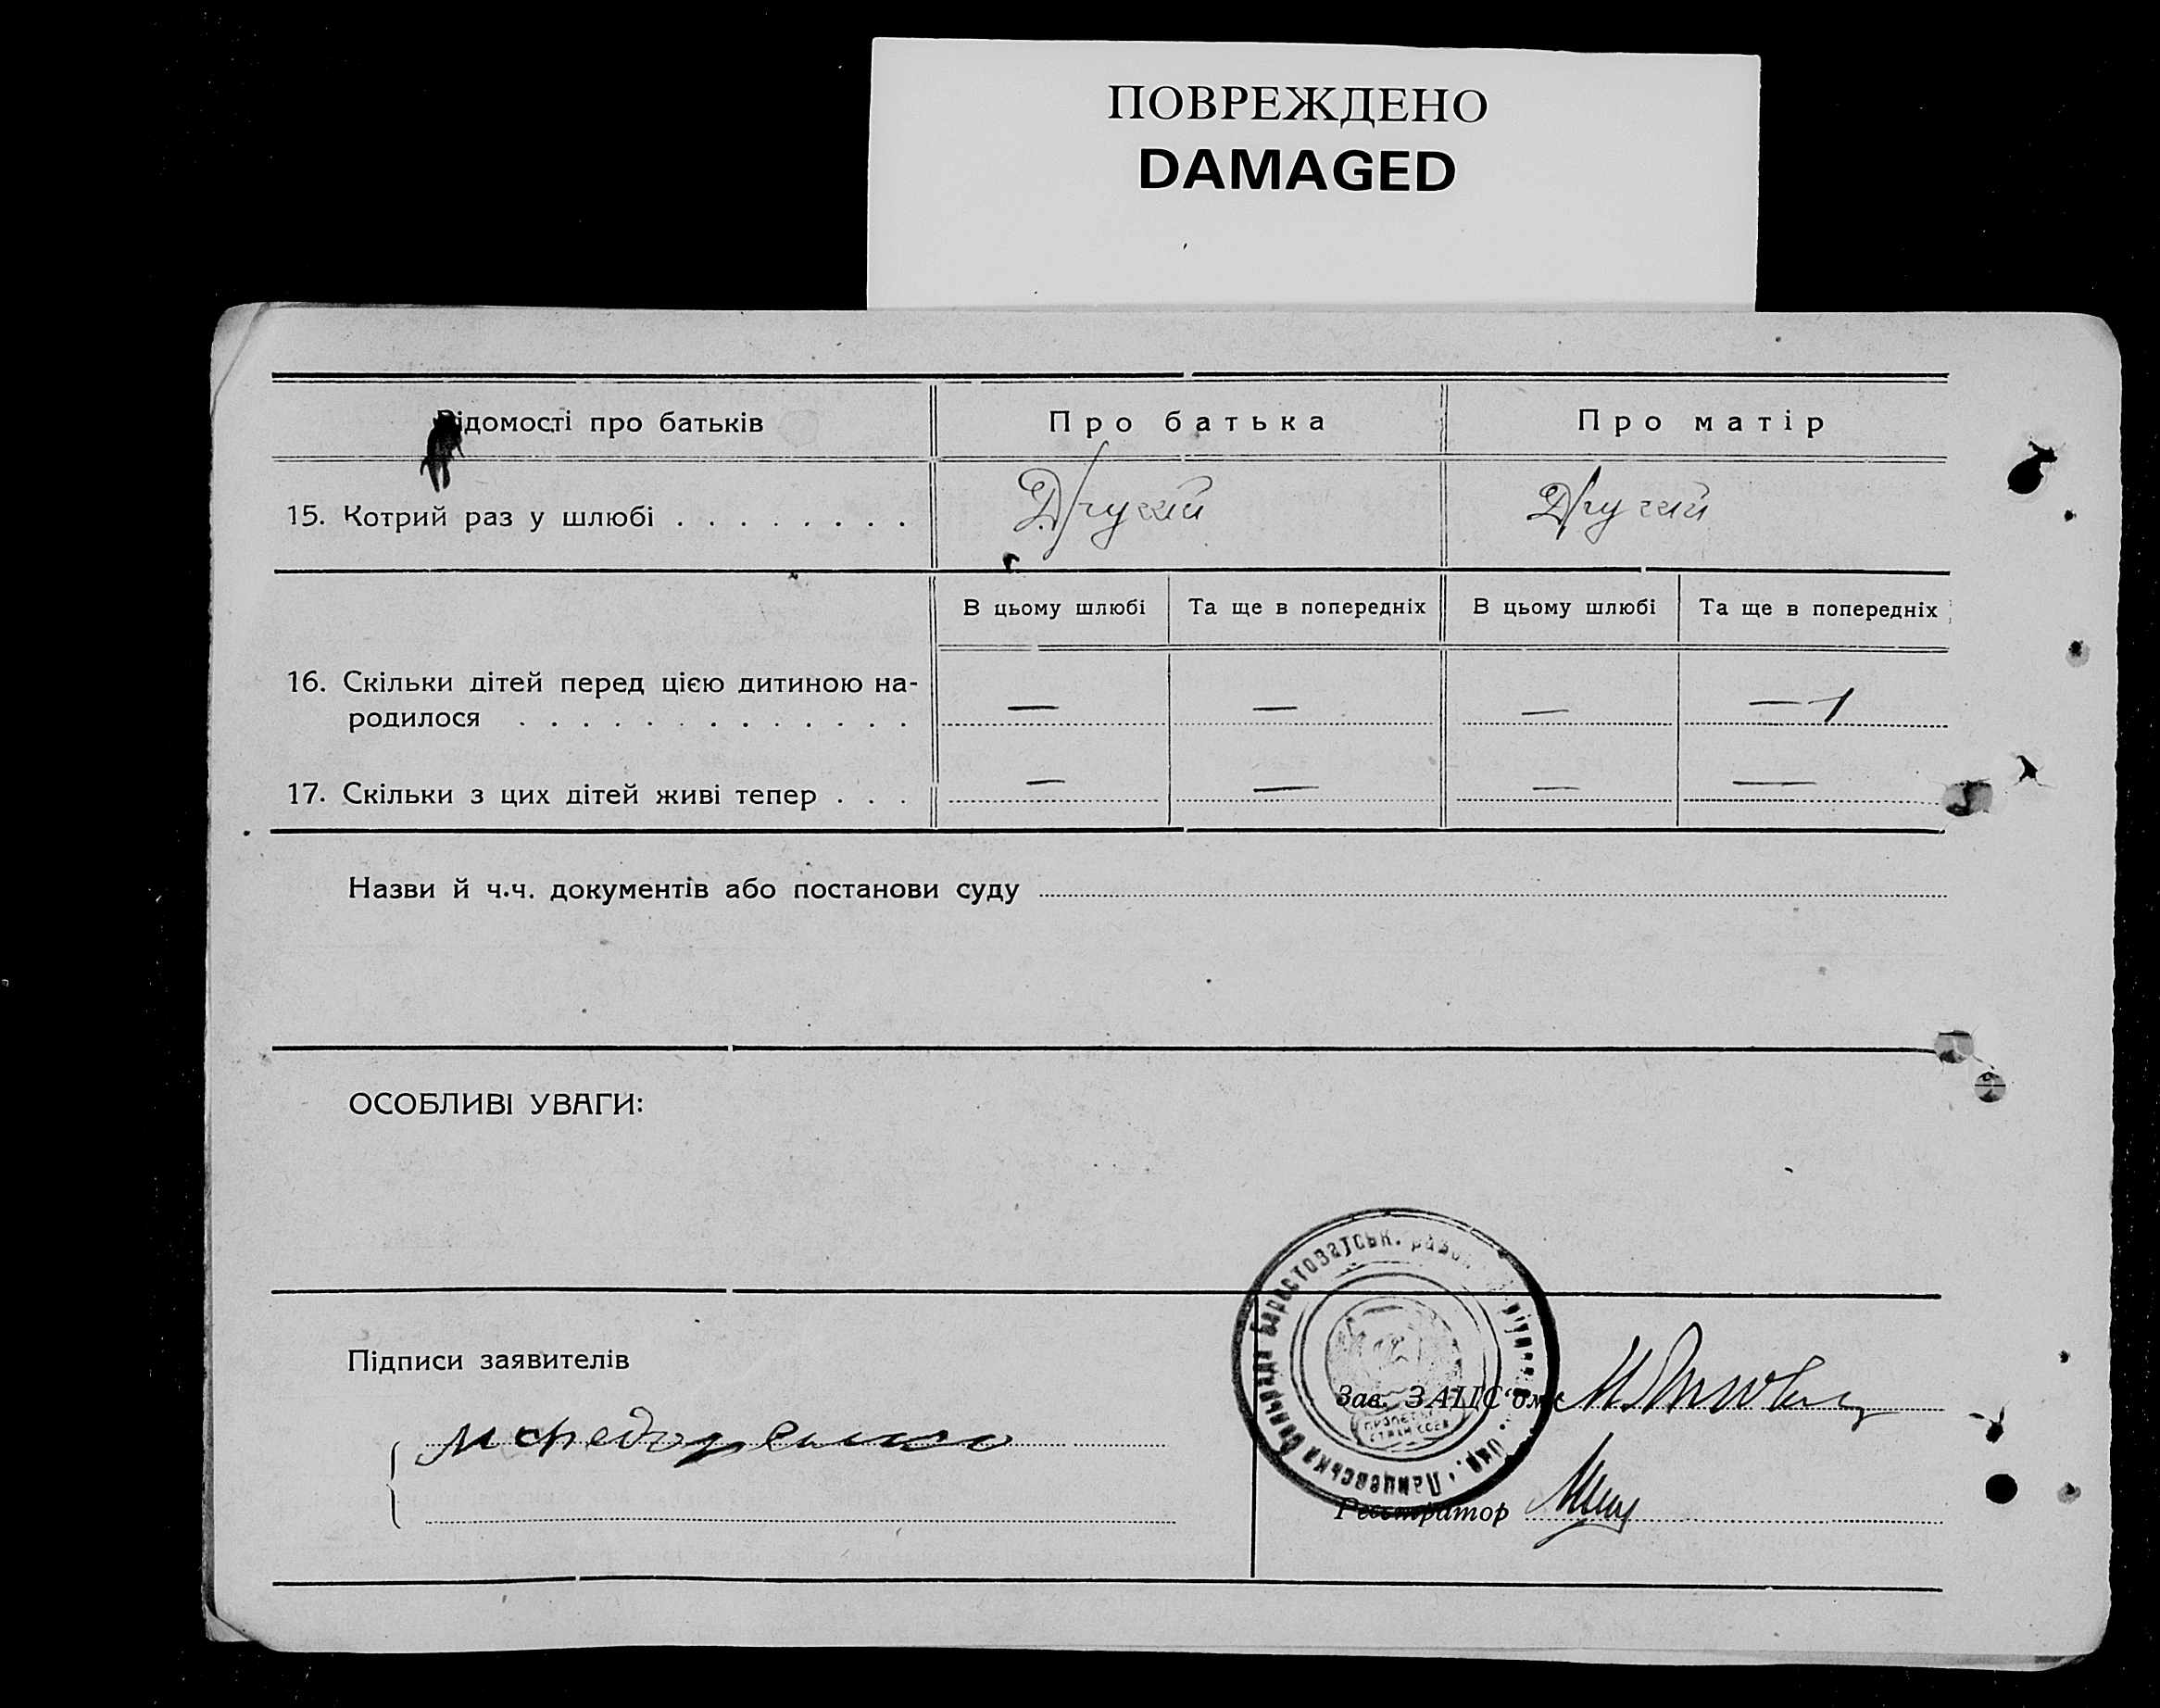 ПОВРЕЖДЕНО
DAMAGED
Відомості про батьків
Про батька
Про матір
15. Котрий раз у шлюбі . . . . . . . .
Другий
Другий
В цьому шлюбі
Та ще в попередніх
В цьому шлюбі
Та ще в попередніх
16. Скільки дітей перед цією дитиною на-
родилося . . . . . . . . . . . . .
—
—
—
— 1
17. Скільки з цих дітей живі тепер . . .
—
—
—
—
Назви й ч.ч. документів або постанови суду
ОСОБЛИВІ УВАГИ:
Підписи заявителів
Зав. ЗАЦС'ом
Реєстратор